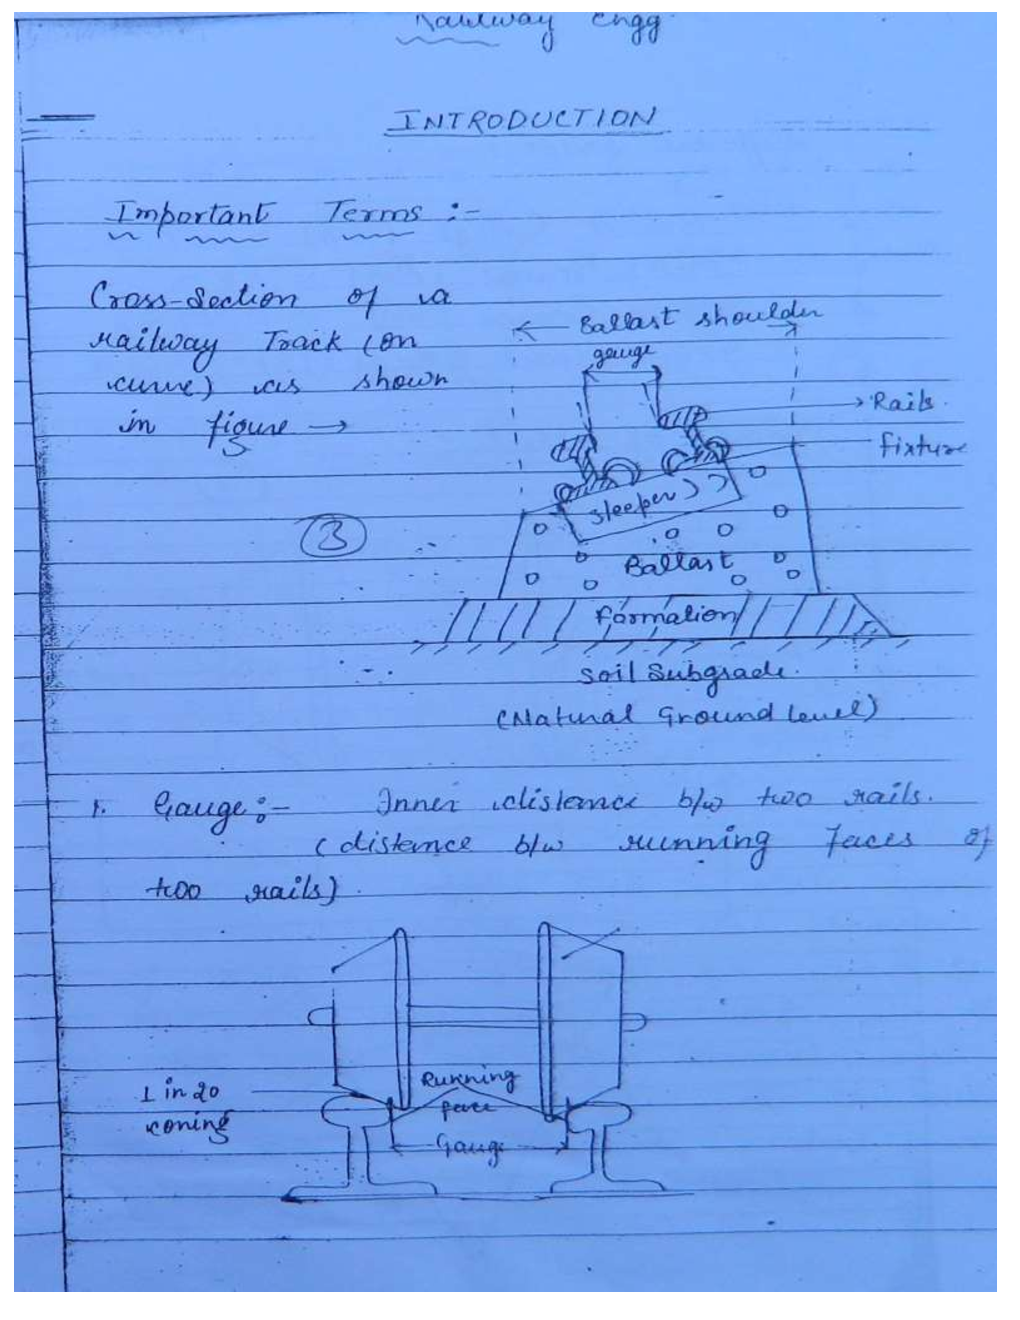 Railway Engg.
INTRODUCTION
Important Terms :-
Cross-Section of a
railway Track (on
curve) as shown
in figure →
← Ballast shoulder →
gauge
Rails
fixture
sleeper
3
Ballast
formation
Soil Subgrade.
(Natural Ground Level)
1. Gauge :- Inner distance b/w two rails.
(distance b/w running faces of
two rails).
Running
face
1 in 20
coning
Gauge